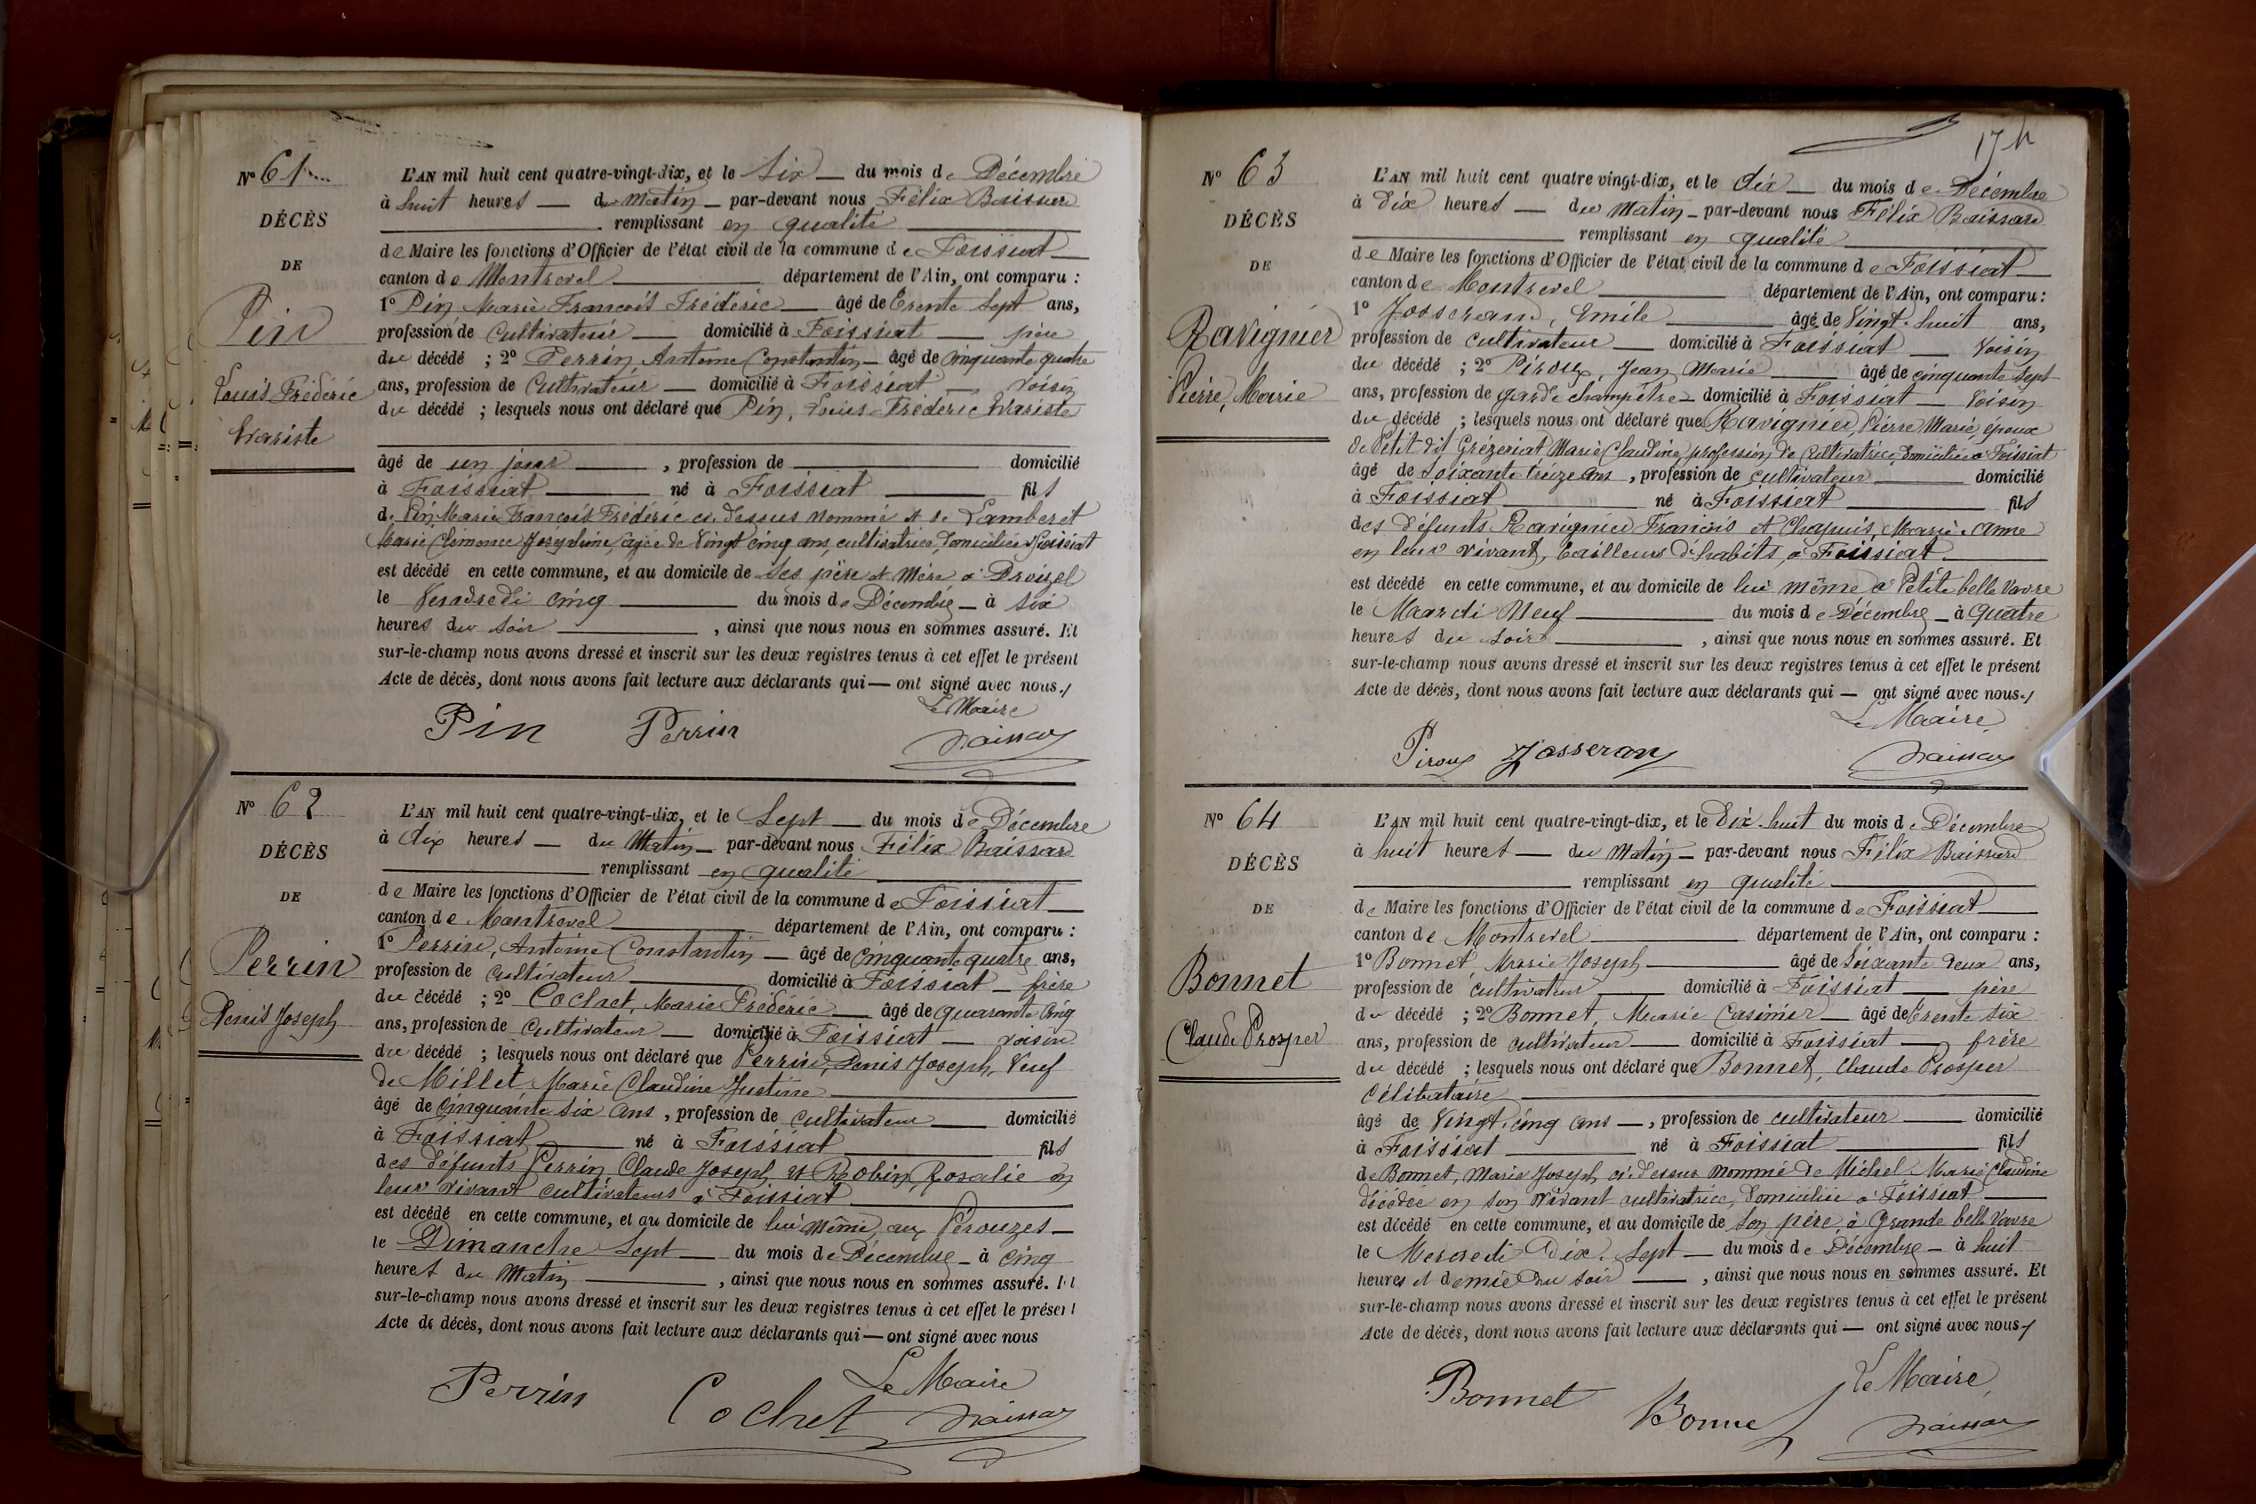 N° 61
DÉCÈS
DE
Pin
Louis Frédéric
Evariste
L'AN mil huit cent quatre-vingt-dix, et le Six du mois de Décembre
à huit heures du Matin par-devant nous Félix Baissard
remplissant en qualité
de Maire les fonctions d'Officier de l'état civil de la commune de Foissiat
canton de Montrevel département de l'Ain, ont comparu :
1° Pin, Marie François Frédéric âgé de Trente Sept ans,
profession de Cultivateur domicilié à Foissiat père
du décédé ; 2° Perrin Antoine Constantin âgé de Cinquante quatre
ans, profession de Cultivateur domicilié à Foissiat voisin
du décédé ; lesquels nous ont déclaré que Pin, Louis Frédéric Evariste
âgé de un jour , profession de domicilié
à Foissiat né à Foissiat fils
de Pin Marie François Frédéric ci-dessus nommé et de Lamberet
Marie Clémence Joséphine, âgée de Vingt cinq ans, cultivatrice, domiciliée à Foissiat
est décédé en cette commune, et au domicile de ses père et Mère à
le Vendredi cinq du mois de Décembre à six
heures du soir , ainsi que nous nous en sommes assuré. Et
sur-le-champ nous avons dressé et inscrit sur les deux registres tenus à cet effet le présent
Acte de décès, dont nous avons fait lecture aux déclarants qui ont signé avec nous.
Le Maire
Pin Perrin Baissard
N° 62
DÉCÈS
DE
Perrin
Denis Joseph
L'AN mil huit cent quatre-vingt-dix, et le Sept du mois de Décembre
à dix heures du Matin par-devant nous Félix Baissard
remplissant en qualité
de Maire les fonctions d'Officier de l'état civil de la commune de Foissiat
canton de Montrevel département de l'Ain, ont comparu :
1° Perrin, Antoine Constantin âgé de Cinquante quatre ans,
profession de Cultivateur domicilié à Foissiat frère
du décédé ; 2° Cochet, Marie Frédéric âgé de quarante cinq
ans, profession de Cultivateur domicilié à Foissiat voisin
du décédé ; lesquels nous ont déclaré que Perrin, Denis Joseph, Veuf
de Millet Marie Claudine Justine
âgé de Cinquante six ans, profession de cultivateur domicilié
à Foissiat né à Foissiat fils
des défunts Perrin Claude Joseph et Robin, Rosalie en
leur vivant cultivateurs à Foissiat
est décédé en cette commune, et au domicile de lui même, aux Perouzes
le Dimanche Sept du mois de Décembre à cinq
heures du Matin , ainsi que nous nous en sommes assuré. Et
sur-le-champ nous avons dressé et inscrit sur les deux registres tenus à cet effet le présent
Acte de décès, dont nous avons fait lecture aux déclarants qui ont signé avec nous
Le Maire
Perrin Cochet Baissard
174
N° 63
DÉCÈS
DE
Ravignier
Pierre, Marie
L'AN mil huit cent quatre vingt-dix, et le dix du mois de Décembre
à Dix heures du Matin par-devant nous Félix Baissard
remplissant en qualité
de Maire les fonctions d'Officier de l'état civil de la commune de Foissiat
canton de Montrevel département de l'Ain, ont comparu :
1° Josserand, Emile âgé de Vingt huit ans,
profession de cultivateur domicilié à Foissiat Voisin
du décédé ; 2° Piroux, Jean Marie âgé de cinquante sept
ans, profession de garde champêtre domicilié à Foissiat Voisin
du décédé ; lesquels nous ont déclaré que Ravignier, Pierre Marie, époux
de Petit dit Grézeriat Marie Claudine, profession de Cultivatrice, domiciliée à Foissiat
âgé de soixante treize ans, profession de cultivateur domicilié
à Foissiat né à Foissiat fils
des défunts Ravignier François et Chapuis, Marie Anne
en leur vivant, tailleurs d'habits, à Foissiat
est décédé en cette commune, et au domicile de lui même à Petite belle Vavre
le Mardi Neuf du mois de Décembre à quatre
heures du soir , ainsi que nous nous en sommes assuré. Et
sur-le-champ nous avons dressé et inscrit sur les deux registres tenus à cet effet le présent
Acte de décès, dont nous avons fait lecture aux déclarants qui ont signé avec nous.
Le Maire
Piroux Josseran Baissard
N° 64
DÉCÈS
DE
Bonnet
Claude Prosper
L'AN mil huit cent quatre-vingt-dix, et le Dix huit du mois de Décembre
à huit heures du Matin par-devant nous Félix Baissard
remplissant en qualité
de Maire les fonctions d'Officier de l'état civil de la commune de Foissiat
canton de Montrevel département de l'Ain, ont comparu :
1° Bonnet, Marie Joseph âgé de Soixante Deux ans,
profession de cultivateur domicilié à Foissiat père
du décédé ; 2° Bonnet, Marie Casimir âgé de trente six
ans, profession de cultivateur domicilié à Foissiat frère
du décédé ; lesquels nous ont déclaré que Bonnet, Claude Prosper
Célibataire
âgé de Vingt cinq ans , profession de cultivateur domicilié
à Foissiat né à Foissiat fils
de Bonnet, Marie Joseph ci-dessus nommé de Michel Marie Claudine
décédée en son vivant cultivatrice, domiciliée à Foissiat
est décédé en cette commune, et au domicile de son père, à Grande belle Vavre
le Mercredi Dix sept du mois de Décembre à huit
heures et demie du soir , ainsi que nous nous en sommes assuré. Et
sur-le-champ nous avons dressé et inscrit sur les deux registres tenus à cet effet le présent
Acte de décès, dont nous avons fait lecture aux déclarants qui ont signé avec nous
Le Maire
Bonnet Bonnet Baissard